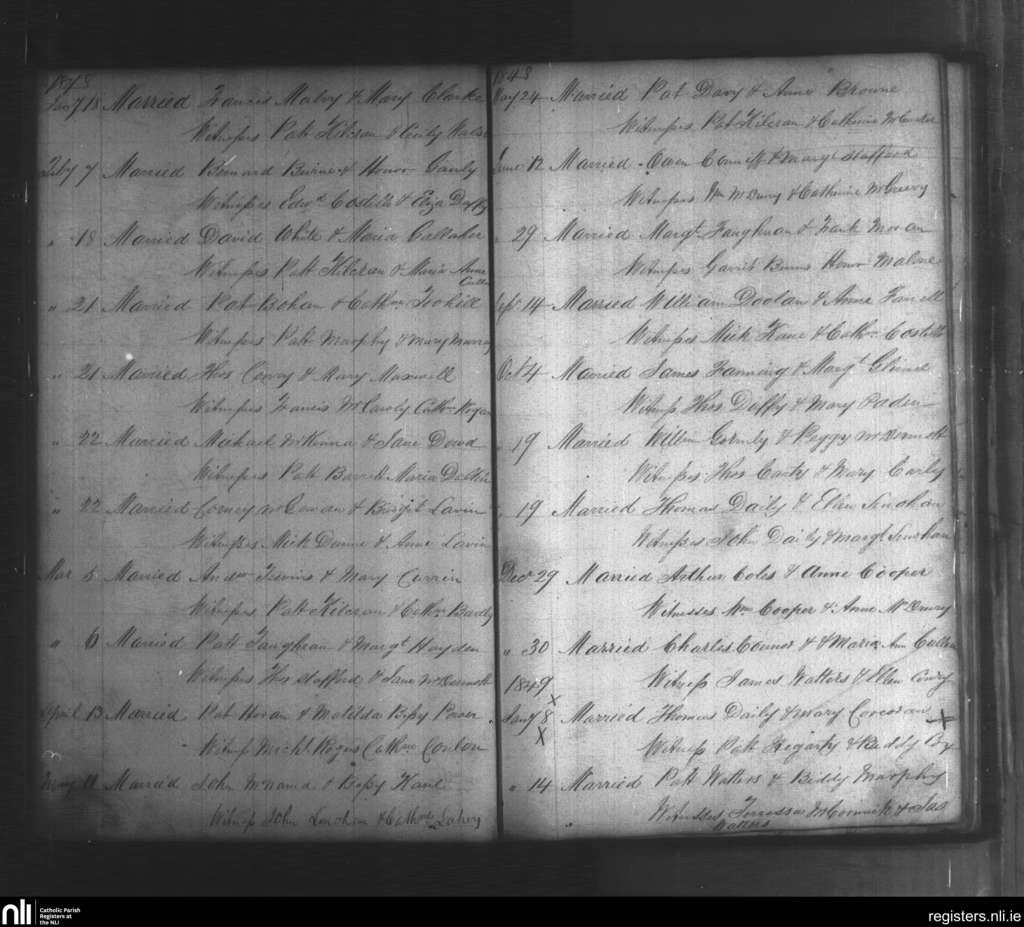 1848
Jany 18 Married Frances Malvy & Mary Clarke
Witnesses Patt Kilcran & Cicily Walsh
Feby 7 Married Bernard Beirne & Honor Ganly
Witnesses Edwd Costello & Eliza Duffy
" 18 Married David White & Maria Gallaher
Witnesses Patt Kilcran & Maria Anne
" 21 Married Pat Bohan & Cathne
Witnesses Patt Murphy & Mary Murray
" 21 Married Thos Conry & Mary Maxwell
Witnesses Francis McCawly Cathn Hogan
" 22 Married Michael McKenna & Jane Dowd
Witnesses Pat Barrett Maria Dalton
" 22 Married McGowan & Bridgit Lavin
Witnesses Mick & Anne Lavin
Mar 5 Married Andw & Mary Currin
Witnesses Patt Kilcran & Cathn
" 6 Married Patt Faughnan & Margt Hayden
Witnesses Thos Stafford & Jane McDermott
April 13 Married Pat Horan & Matilda Bessy Power
Witness Michl Rogers Cathne Conlon
May 11 Married John McNamd & Bessy Kane
Witness John & Cathne
1848
May 24 Married Pat Davy & Anne Browne
Witnesses Pat Kilcran & Catherine
June 12 Married Owen & Margt Stafford
Witnesses Wm & Catherine McGreevy
" 29 Married Margt Faughnan & Frank Moran
Witnesses Garrit Burns Honor Malone
Sept 14 Married William Doolan & Anne Farrell
Witnesses Mick Kane & Cathn Costello
Oct 4 Married James Fanning & Margt
Witness Thos Duffy & Mary Paden
" 19 Married Willim Gormly & Peggy McDermott
Witnesses Thos Carty & Mary Carty
" 19 Married Thomas Daily & Ellen
Witnesses John Daily & Margt
Decr 29 Married Arthur Coles & Anne Cooper
Witnesses Wm Cooper & Anne
" 30 Married Charles Connor & & Maria Ann Cullen
1849 Witness James Watters & Ellen Conry
X
Jany 8 Married Thomas Daily & Mary Corcoran X
X Witness Patt Hegarty & Biddy
" 14 Married Patt Watters & Biddy Murphy
Witnesses Terressa McCormick & Jas
Watters
nli
Catholic Parish
Registers at
the NLI
registers.nli.ie